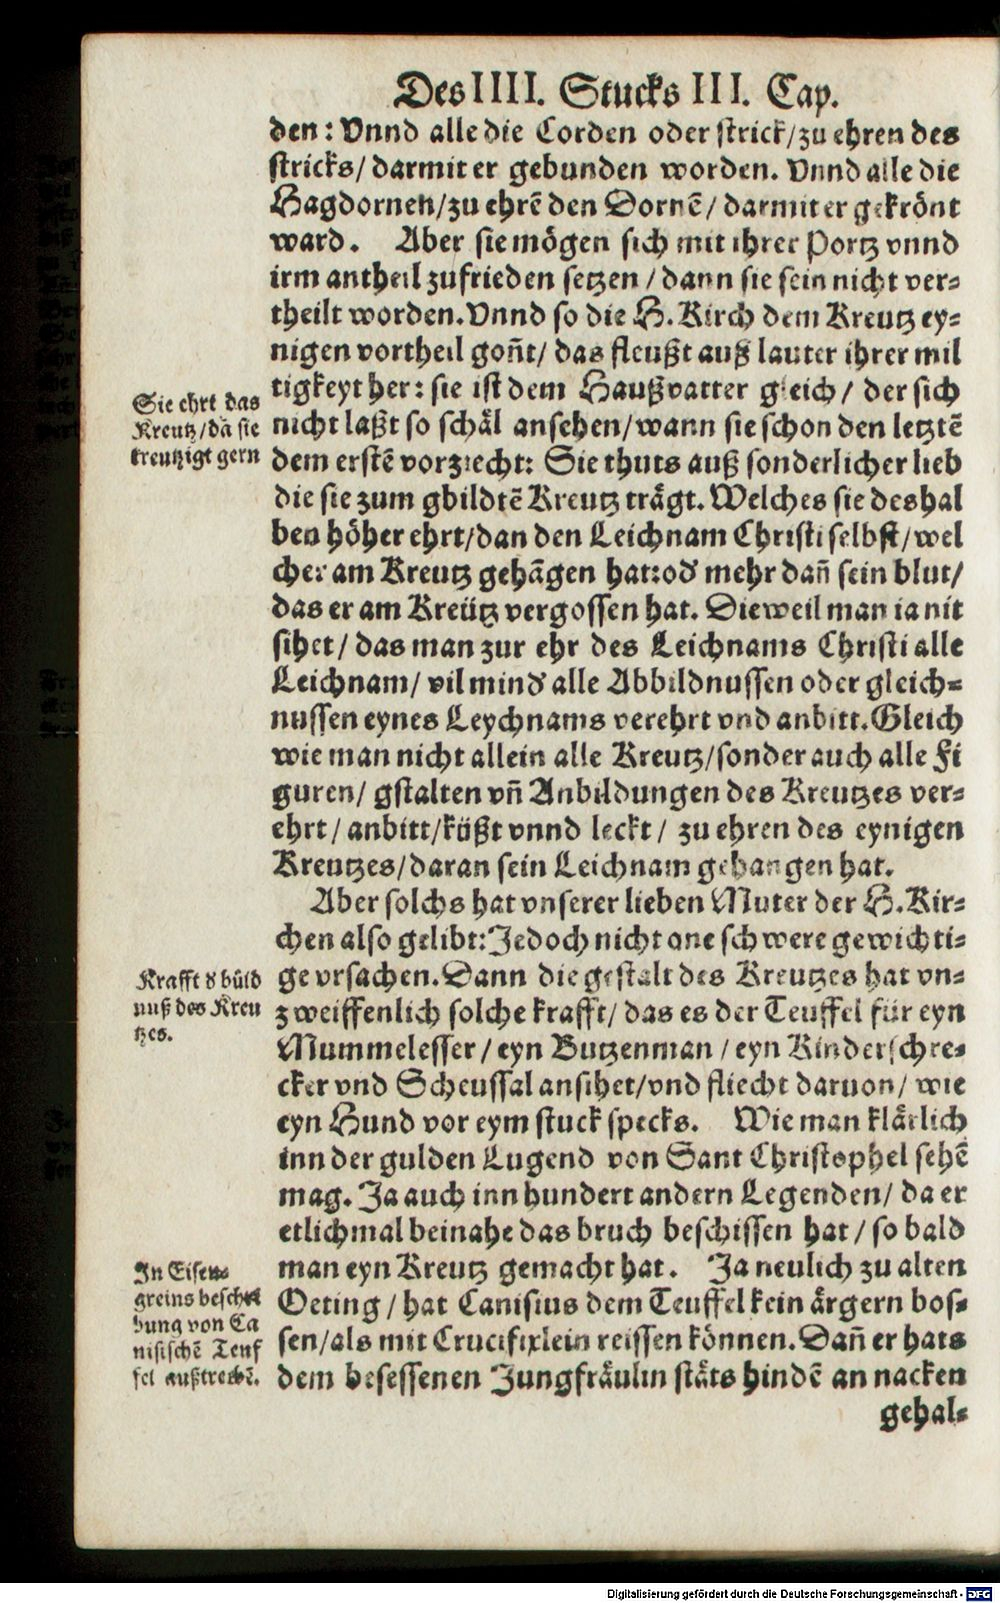 Des IIII. Stucks III. Cap.
den: Vnnd alle die Corden oder strick/zu ehren des
stricks/ darmit er gebunden worden. Vnnd alle die
Hagdornen/zu ehrē den Dornē/ darmit er gekrönt
ward. Aber sie mögen sich mit ihrer Portz vnnd
irm antheil zufrieden setzen / dann sie sein nicht ver-
theilt worden. Vnnd so die H. Kirch dem Kreutz ey-
nigen vortheil goñt/ das fleußt auß lauter ihrer mil
tigkeyt her: sie ist dem Haußvatter gleich / der sich
nicht laßt so schäl ansehen/wann sie schon den letztē
dem erstē vorzicht: Sie thuts auß sonderlicher lieb
die sie zum gbildtē Kreutz trägt. Welches sie deshal
ben höher ehrt/dan den Leichnam Christi selbst/wel
cher am Kreutz gehāgen hat: od' mehr dañ sein blut/
das er am Kreütz vergossen hat. Dieweil man ia nit
sihet / das man zur ehr des Leichnams Christi alle
Leichnam/ vil mind' alle Abbildnussen oder gleich-
nussen eynes Leychnams verehrt vnd anbitt. Gleich
wie man nicht allein alle Kreutz/sonder auch alle Fi
guren/ gstalten vñ Anbildungen des Kreutzes ver-
ehrt / anbitt/küßt vnnd leckt / zu ehren des eynigen
Kreutzes/daran sein Leichnam gehangen hat.
Aber solchs hat vnserer lieben Muter der H. Kir-
chen also gelibt: Jedoch nicht one schwere gewichti-
ge vrsachen. Dann die gestalt des Kreutzes hat vn-
zweiffenlich solche krafft/ das es der Teuffel für eyn
Mummelesser / eyn Butzenman / eyn Kinderschre-
cker vnd Scheussal ansihet/vnd fliecht daruon/ wie
eyn Hund vor eym stuck specks. Wie man klärlich
inn der gulden Lugend von Sant Christophel sehē
mag. Ja auch inn hundert andern Legenden/ da er
etlichmal beinahe das bruch beschissen hat / so bald
man eyn Kreutz gemacht hat. Ja neulich zu alten
Oeting / hat Canisius dem Teuffel kein ärgern bos-
sen/als mit Crucifixlein reissen können. Dañ er hats
dem besessenen Jungfräulin stäts hindē an nacken
gehal-
Sie ehrt das
Kreutz/dā sie
kreutzigt gern
Krafft d' büld
nuß des Kreu
tzes.
In Eisen-
greins beschrei
bung von Ca
nisischē Teuf
fel außtreibē.
Digitalisierung gefördert durch die Deutsche Forschungsgemeinschaft - DFG